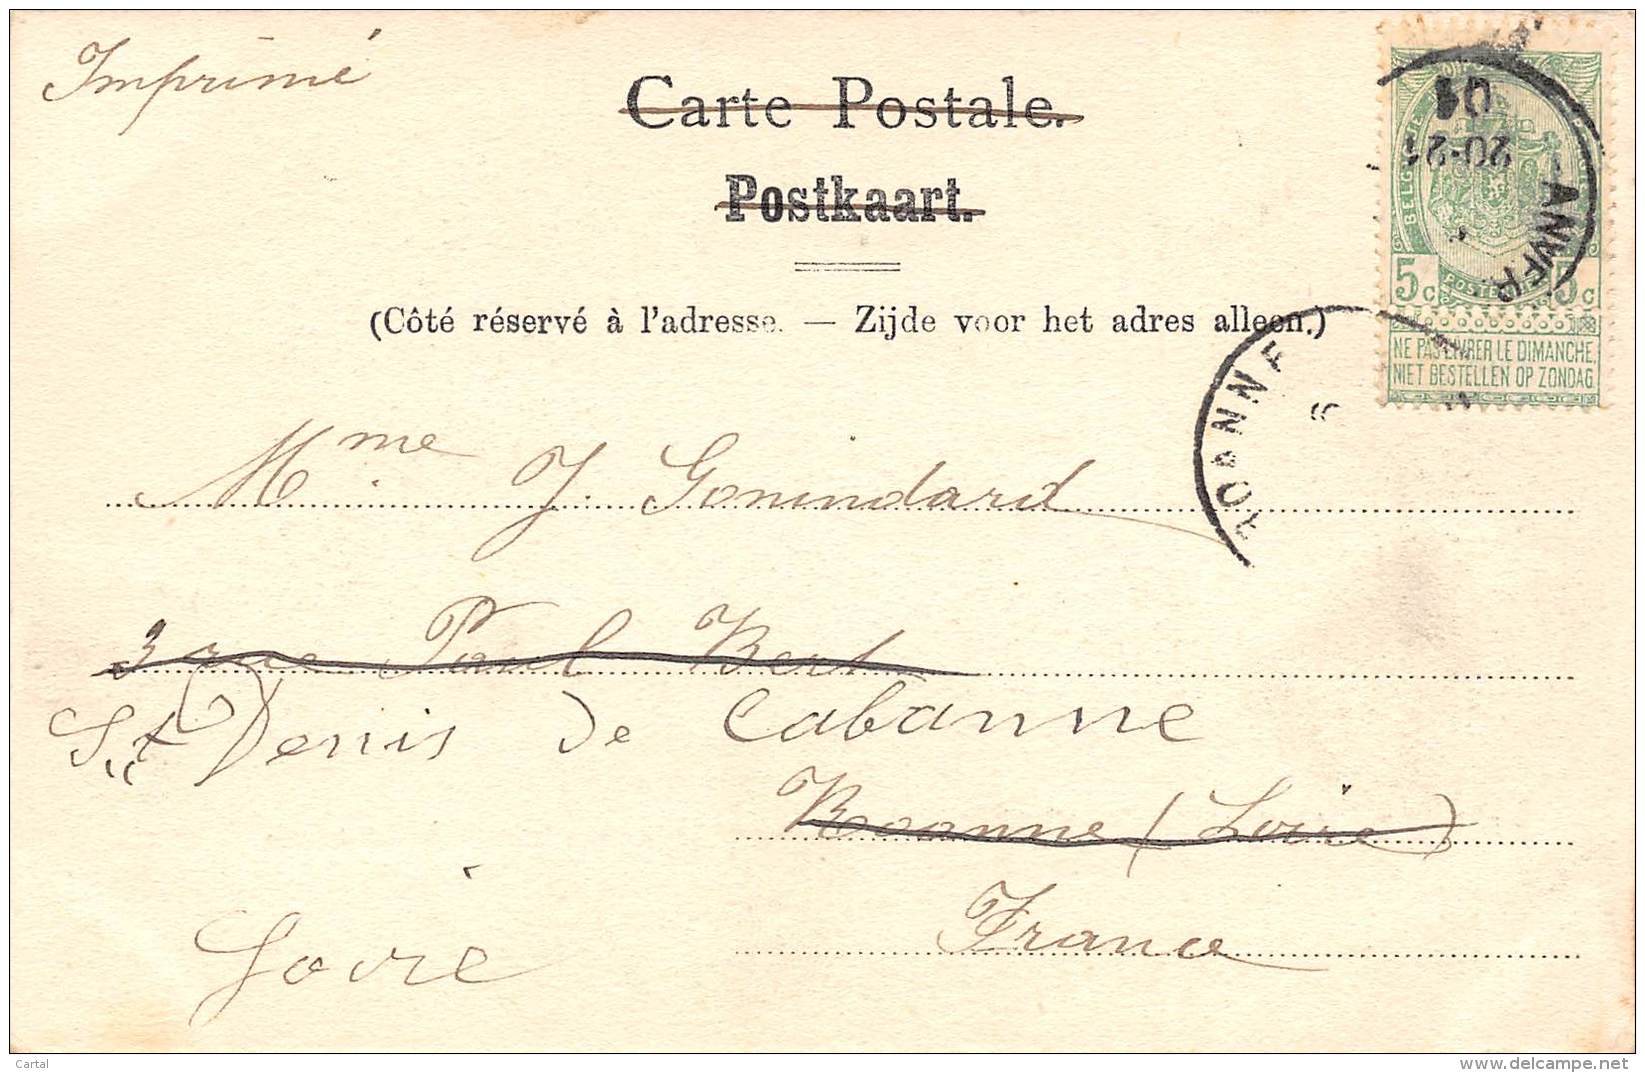 Imprimé
Carte Postale.
Postkaart.
(Côté réservé à l'adresse. — Zijde voor het adres alleen.)
BELGIQUE
5c POSTERIJEN 5c
NE PAS LIVRER LE DIMANCHE.
NIET BESTELLEN OP ZONDAG
ANVERS
20-21
01
ROANNE
Mme. J. Gonindard
3 rue Paul Bert
St Denis de Cabanne
Roanne (Loire)
France
Loire
Cartal
www.delcampe.net